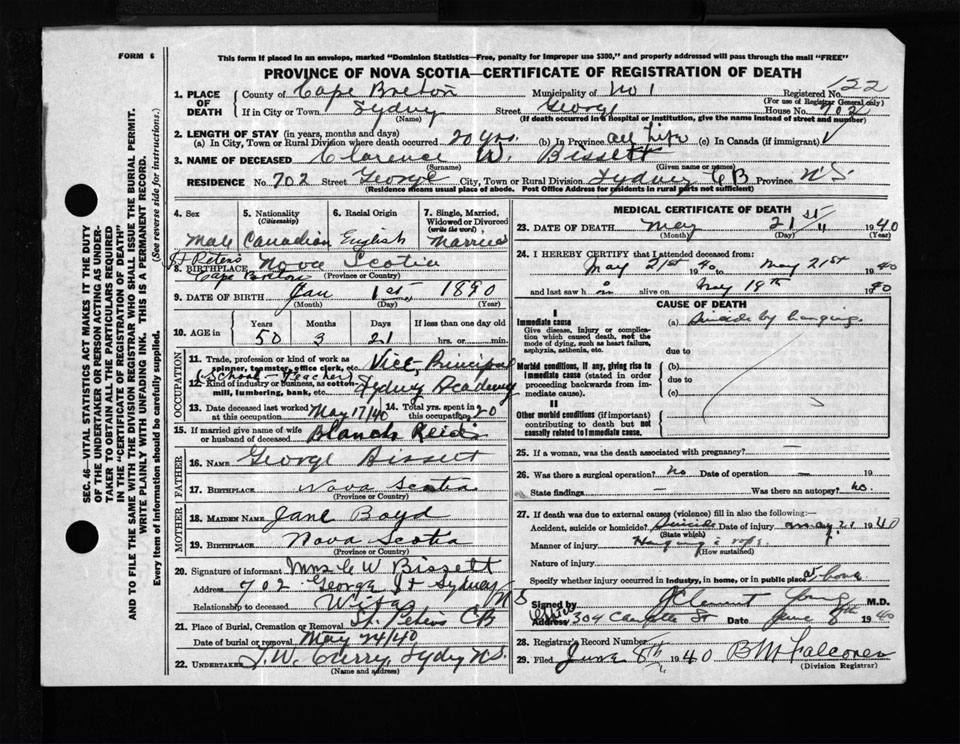 FORM 6
This form if placed in an envelope, marked "Dominion Statistics—Free, penalty for improper use $300," and properly addressed will pass through the mail "FREE"
PROVINCE OF NOVA SCOTIA—CERTIFICATE OF REGISTRATION OF DEATH
SEC. 46—VITAL STATISTICS ACT MAKES IT THE DUTY
OF THE UNDERTAKER OR PERSON ACTING AS UNDER-
TAKER TO OBTAIN ALL THE PARTICULARS REQUIRED
IN THE "CERTIFICATE OF REGISTRATION OF DEATH"
AND TO FILE THE SAME WITH THE DIVISION REGISTRAR WHO SHALL ISSUE THE BURIAL PERMIT.
WRITE PLAINLY WITH UNFADING INK. THIS IS A PERMANENT RECORD.
Every item of information should be carefully supplied. (See reverse side for instructions.)
1. PLACE OF DEATH
County of Cape Breton Municipality of No 1 Registered No. 122
(For use of Registrar General only)
If in City or Town Sydney Street George House No. 702
(Name) (If death occurred in a hospital or institution, give the name instead of street and number)
2. LENGTH OF STAY (in years, months and days)
(a) In City, Town or Rural Division where death occurred 20 yrs. (b) In Province all Life (c) In Canada (if immigrant)
3. NAME OF DECEASED Clarence W. Bissett
(Surname) (Given name or names)
RESIDENCE No. 702 Street George City, Town or Rural Division Sydney CB Province N.S.
(Residence means usual place of abode. Post Office Address for residents in rural parts not sufficient)
4. Sex Male
5. Nationality (Citizenship) Canadian
6. Racial Origin English
7. Single, Married, Widowed or Divorced (write the word) Married
St Peters
8. BIRTHPLACE Nova Scotia
Cape Breton (Province or Country)
9. DATE OF BIRTH Jan 1st 1890
(Month) (Day) (Year)
10. AGE in Years Months Days If less than one day old
50 3 21 hrs. or min.
OCCUPATION
11. Trade, profession or kind of work as spinner, teamster, office clerk, etc. Vice Principal
(School - Teacher)
12. Kind of industry or business, as cotton-mill, lumbering, bank, etc. Sydney Academy
13. Date deceased last worked at this occupation May 17/40 14. Total yrs. spent in this occupation 20
15. If married give name of wife or husband of deceased Blanch Reid
FATHER
16. NAME George Bissett
17. BIRTHPLACE Nova Scotia
(Province or Country)
MOTHER
18. MAIDEN NAME Jane Boyd
19. BIRTHPLACE Nova Scotia
(Province or Country)
20. Signature of informant Mrs C W Bissett
Address 702 George St Sydney NS
Relationship to deceased Wife
21. Place of Burial, Cremation or Removal St. Peters CB
Date of burial or removal May 24/40
22. UNDERTAKER J.W. Curry, Sydney N.S.
(Name and address)
MEDICAL CERTIFICATE OF DEATH
23. DATE OF DEATH May 21st 1940
(Month) (Day) (Year)
24. I HEREBY CERTIFY that I attended deceased from:
May 21st 1940 to May 21st 1940
and last saw him alive on May 19th 1940
CAUSE OF DEATH
I
Immediate cause (a) Suicide by hanging.
Give disease, injury or complication which caused death, not the mode of dying, such as heart failure, asphyxia, asthenia, etc.
due to
Morbid conditions, if any, giving rise to immediate cause (stated in order proceeding backwards from immediate cause). (b)
due to
(c)
II
Other morbid conditions (if important) contributing to death but not causally related to immediate cause.
25. If a woman, was the death associated with pregnancy? —
26. Was there a surgical operation? No Date of operation — 19
State findings — Was there an autopsy? no.
27. If death was due to external causes (violence) fill in also the following:
Accident, suicide or homicide? Suicide Date of injury May 21 1940
(State which)
Manner of injury Hanging
(How sustained)
Nature of injury
Specify whether injury occurred in industry, in home, or in public place at home
Signed by J Clement M.D.
Address 304 St Date June 8th 1940
28. Registrar's Record Number
29. Filed June 8th 1940 B M Falconer
(Division Registrar)